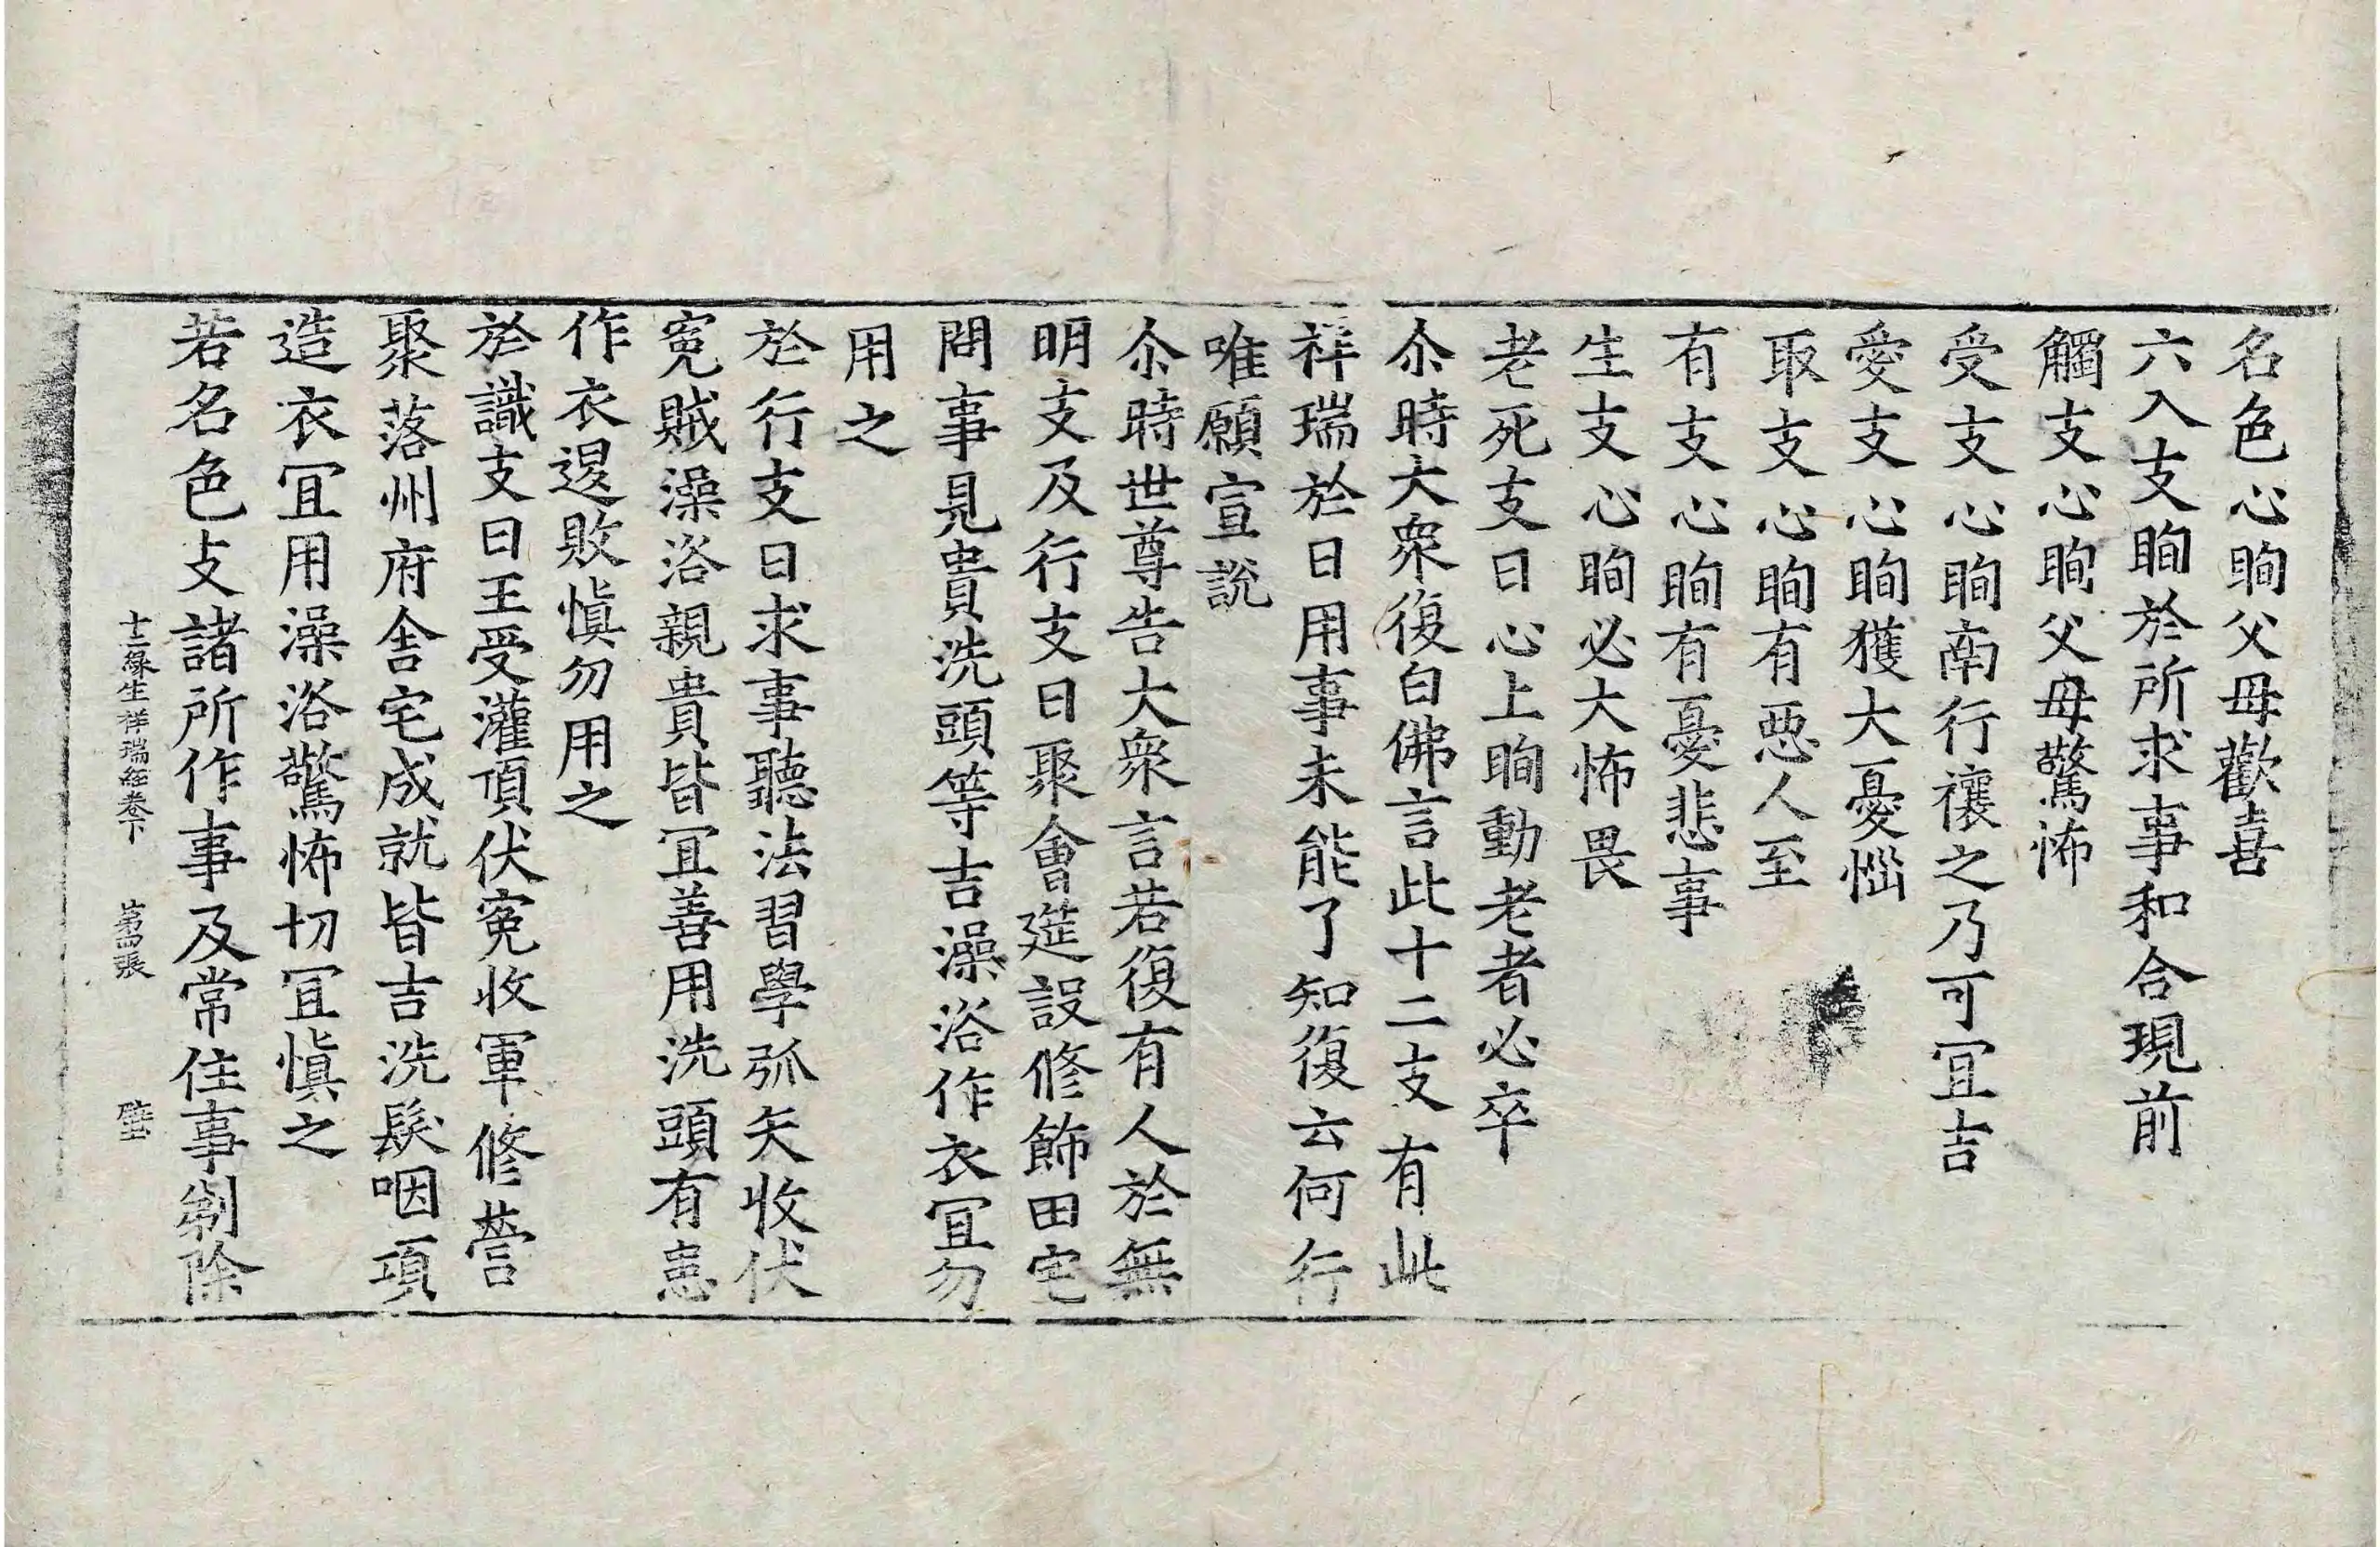 名色心眴父母歡喜
六入支眴於所求事和合現前
觸支心眴父母驚怖
受支心眴南行禳之乃可冝吉
愛支心眴獲大憂惱
取支心眴有惡人至
有支心眴有憂悲事
生支心眴必大怖畏
老死支日心上眴動老者必卒
尒時大衆復白佛言此十二支有此
祥瑞於日用事未能了知復云何行
唯願宣說
尒時世尊告大衆言若復有人於無
明支及行支日聚會莚設修飾田宅
問事見貴洗頭等吉澡浴作衣冝勿
用之
於行支日求事聽法習學弧矢收伏
寃賊澡浴親貴皆冝善用洗頭有恚
作衣退敗愼勿用之
於識支日王受灌頂伏寃收軍修營
聚落州府舍宅成就皆吉洗髮咽項
造衣冝用澡浴驚怖切冝愼之
十二緣生祥瑞經卷下 第四張 壁
若名色支諸所作事及常住事剃除